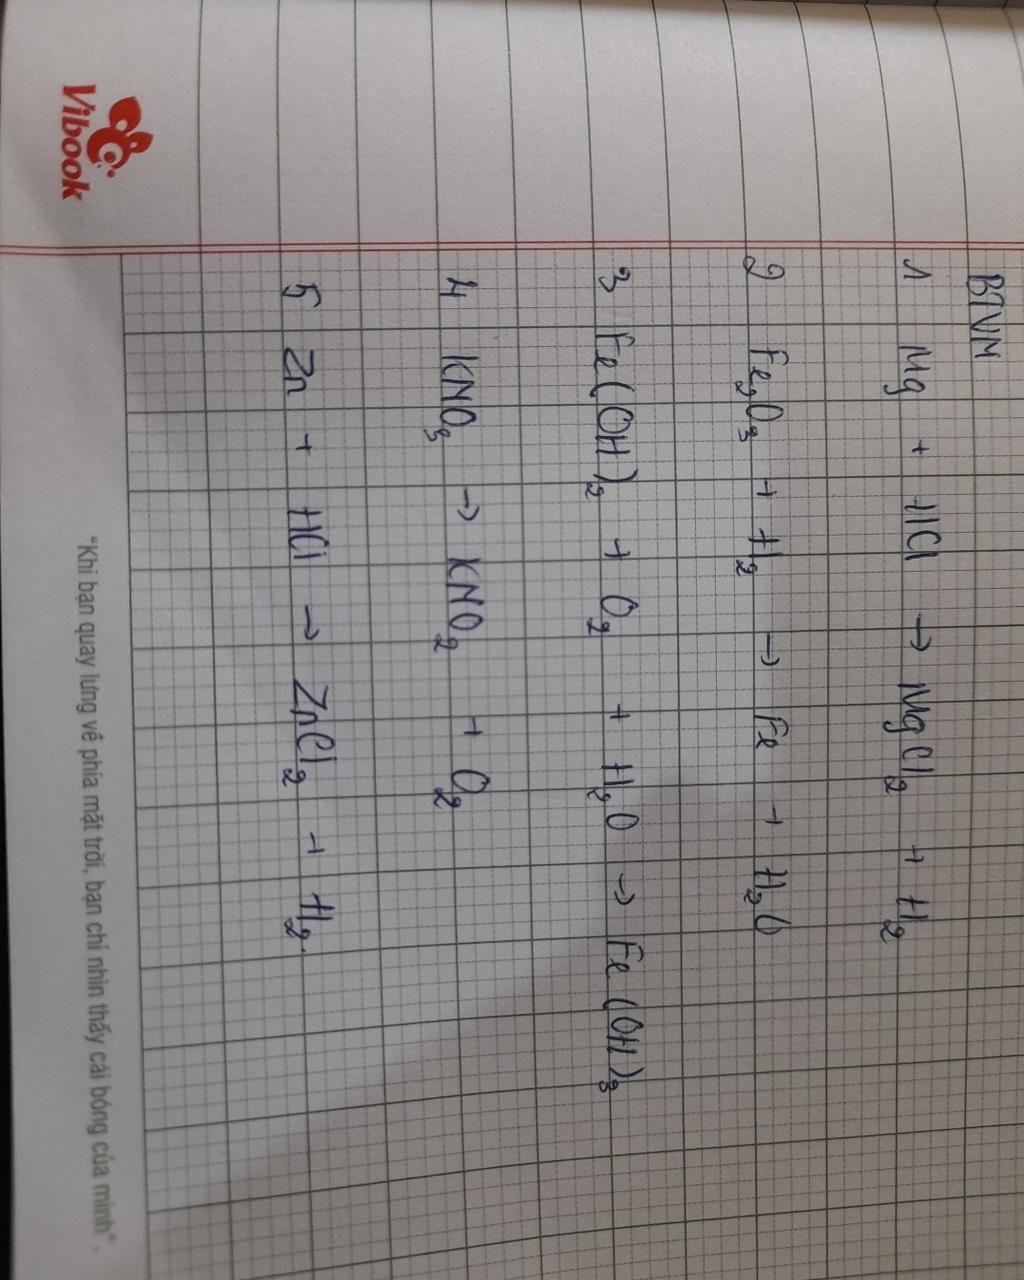 BTVN
1 Mg + HCl → MgCl₂ + H₂
2 Fe₂O₃ + H₂ → Fe + H₂O
3 Fe(OH)₂ + O₂ + H₂O → Fe(OH)₃
4 KNO₃ → KNO₂ + O₂
5 Zn + HCl → ZnCl₂ + H₂.
Vibook
"Khi bạn quay lưng về phía mặt trời, bạn chỉ nhìn thấy cái bóng của mình".